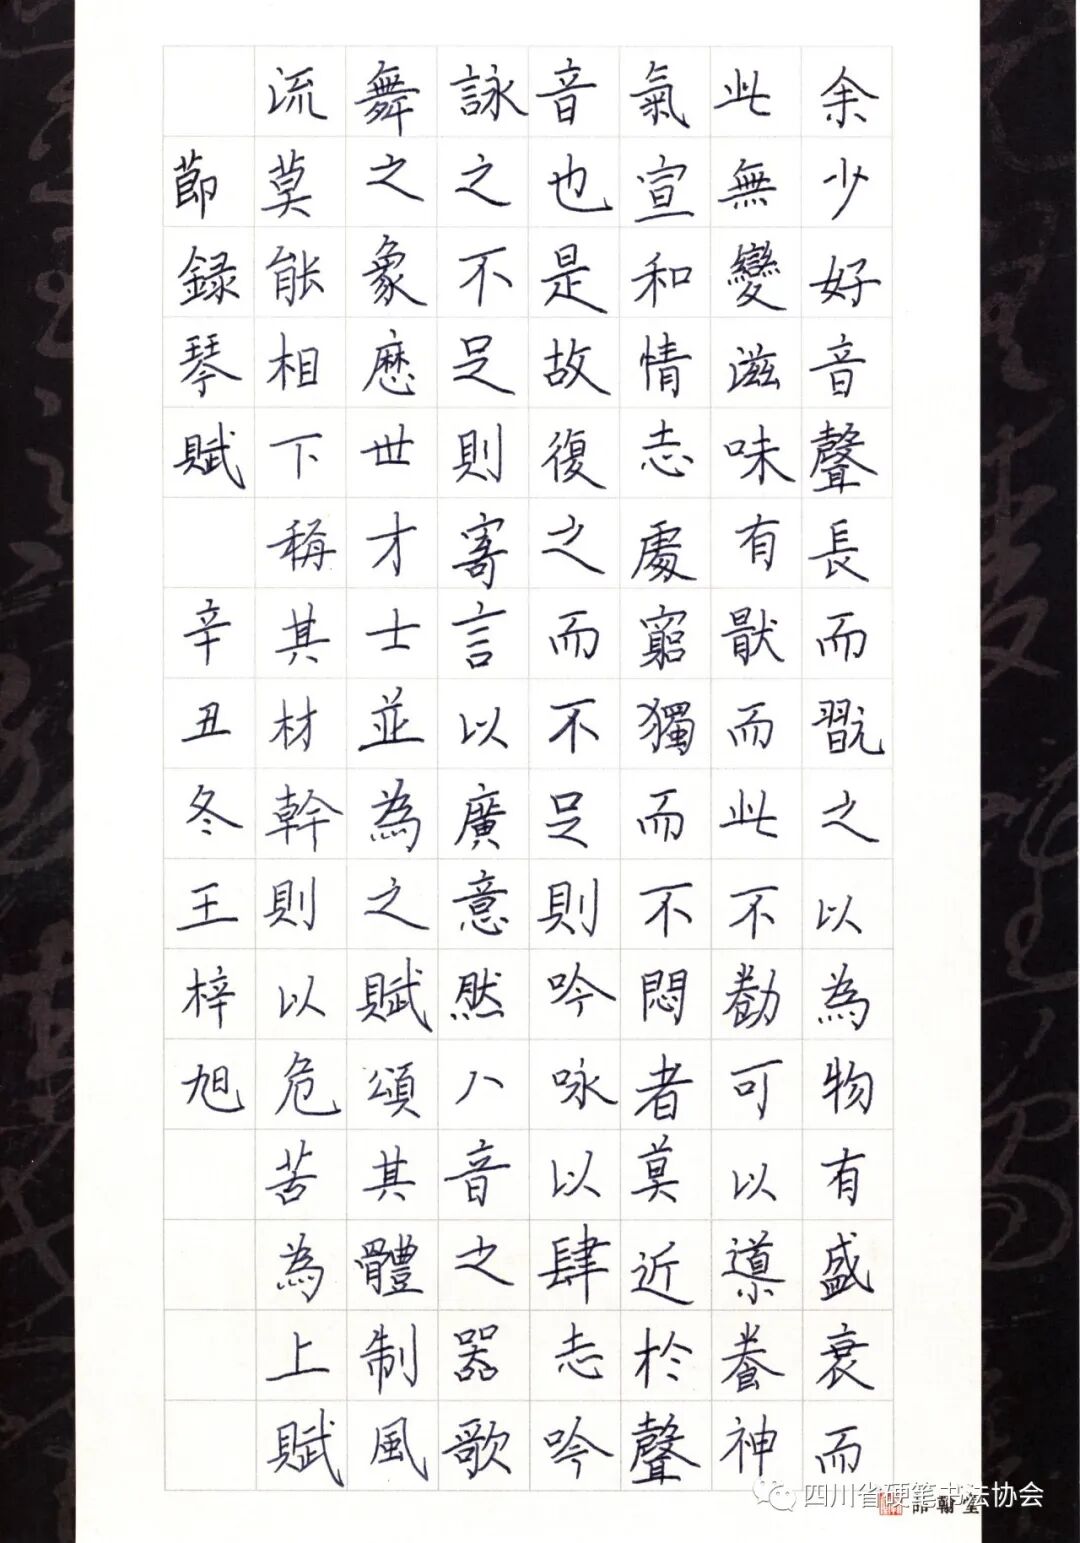 余少好音聲長而翫之以為物有盛衰而
此無變滋味有猒而此不勌可以導養神
氣宣和情志處窮獨而不悶者莫近於聲
音也是故復之而不足則吟咏以肆志吟
詠之不足則寄言以廣意然八音之器歌
舞之象歷世才士並為之賦頌其體制風
流莫能相下稱其材幹則以危苦為上賦
節録琴賦 辛丑冬王梓旭
四川省硬笔书法协会
品翰堂